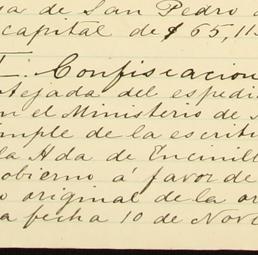 a de San Pedro
capital de $ 65,11
I: Confiscacion
tejada del expedi
n el Ministerio de
imple de la escritu
la Hda de Encinill
obierno á favor de
o original de la or
a fecha 10 de Nove